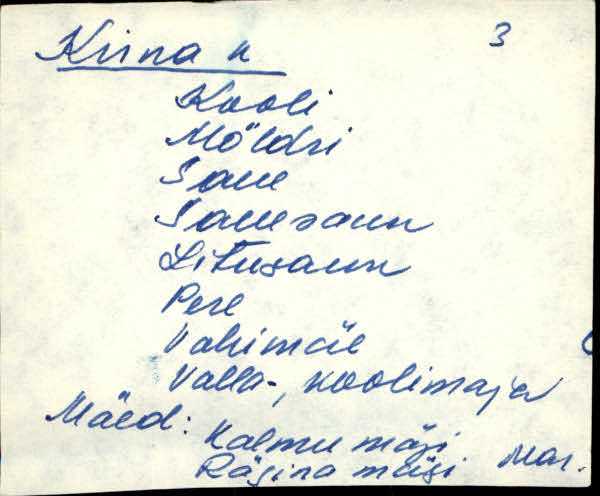 3
Kiina k
Kooli
Möldri
Saue
Sauesaun
Litusaun
Pere
Vahimäe
Valla-, koolimaja
Mäed: Kalmu mägi
Rägina mägi Mar.